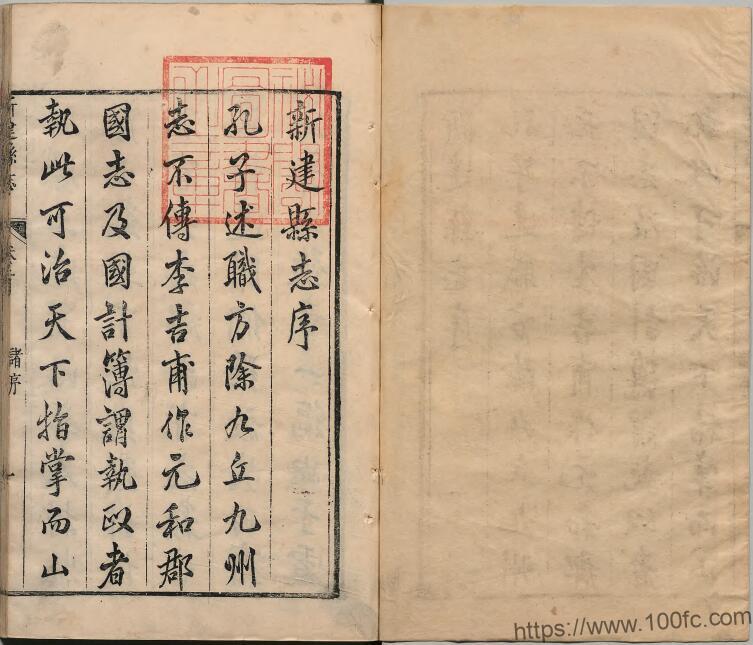 新建縣志序
孔子述職方除九丘九州
志不傳李吉甫作元和郡
國志及國計簿謂執政者
執此可治天下指掌而山
新建縣志
諸序
一
https://www.100fc.com